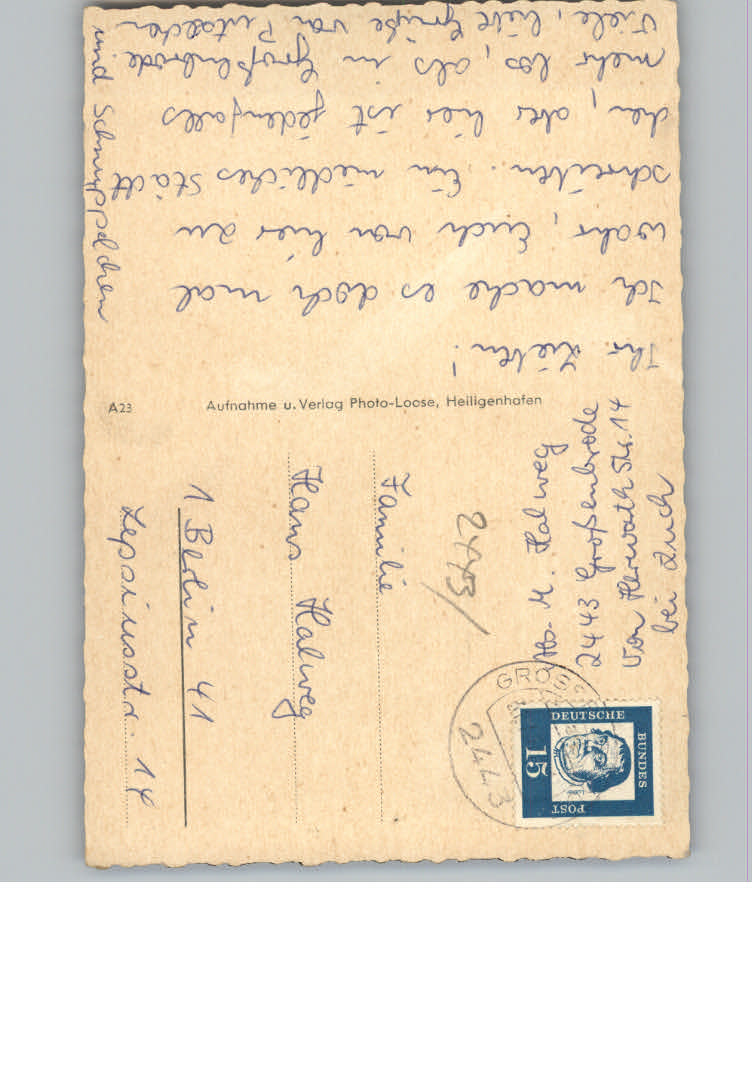 Ihr Lieben!
Ich mache es doch mal
wahr, Euch von hier zu
schreiben. Ein niedliches Städt
chen, aber hier ist jedenfalls
mehr los, als in Großenbrode
Viele, liebe Grüße von
und Schnuppelchen
A23
Aufnahme u. Verlag Photo-Loose, Heiligenhafen
Abs. M. Halweg
2443 Großenbrode
Von Herwath Str. 14
bei Zuch
2443/
GROSS
2443
DEUTSCHE
BUNDES
POST
15
Familie
Hans Halweg
1 Berlin 41
Lepsiusstr. 14